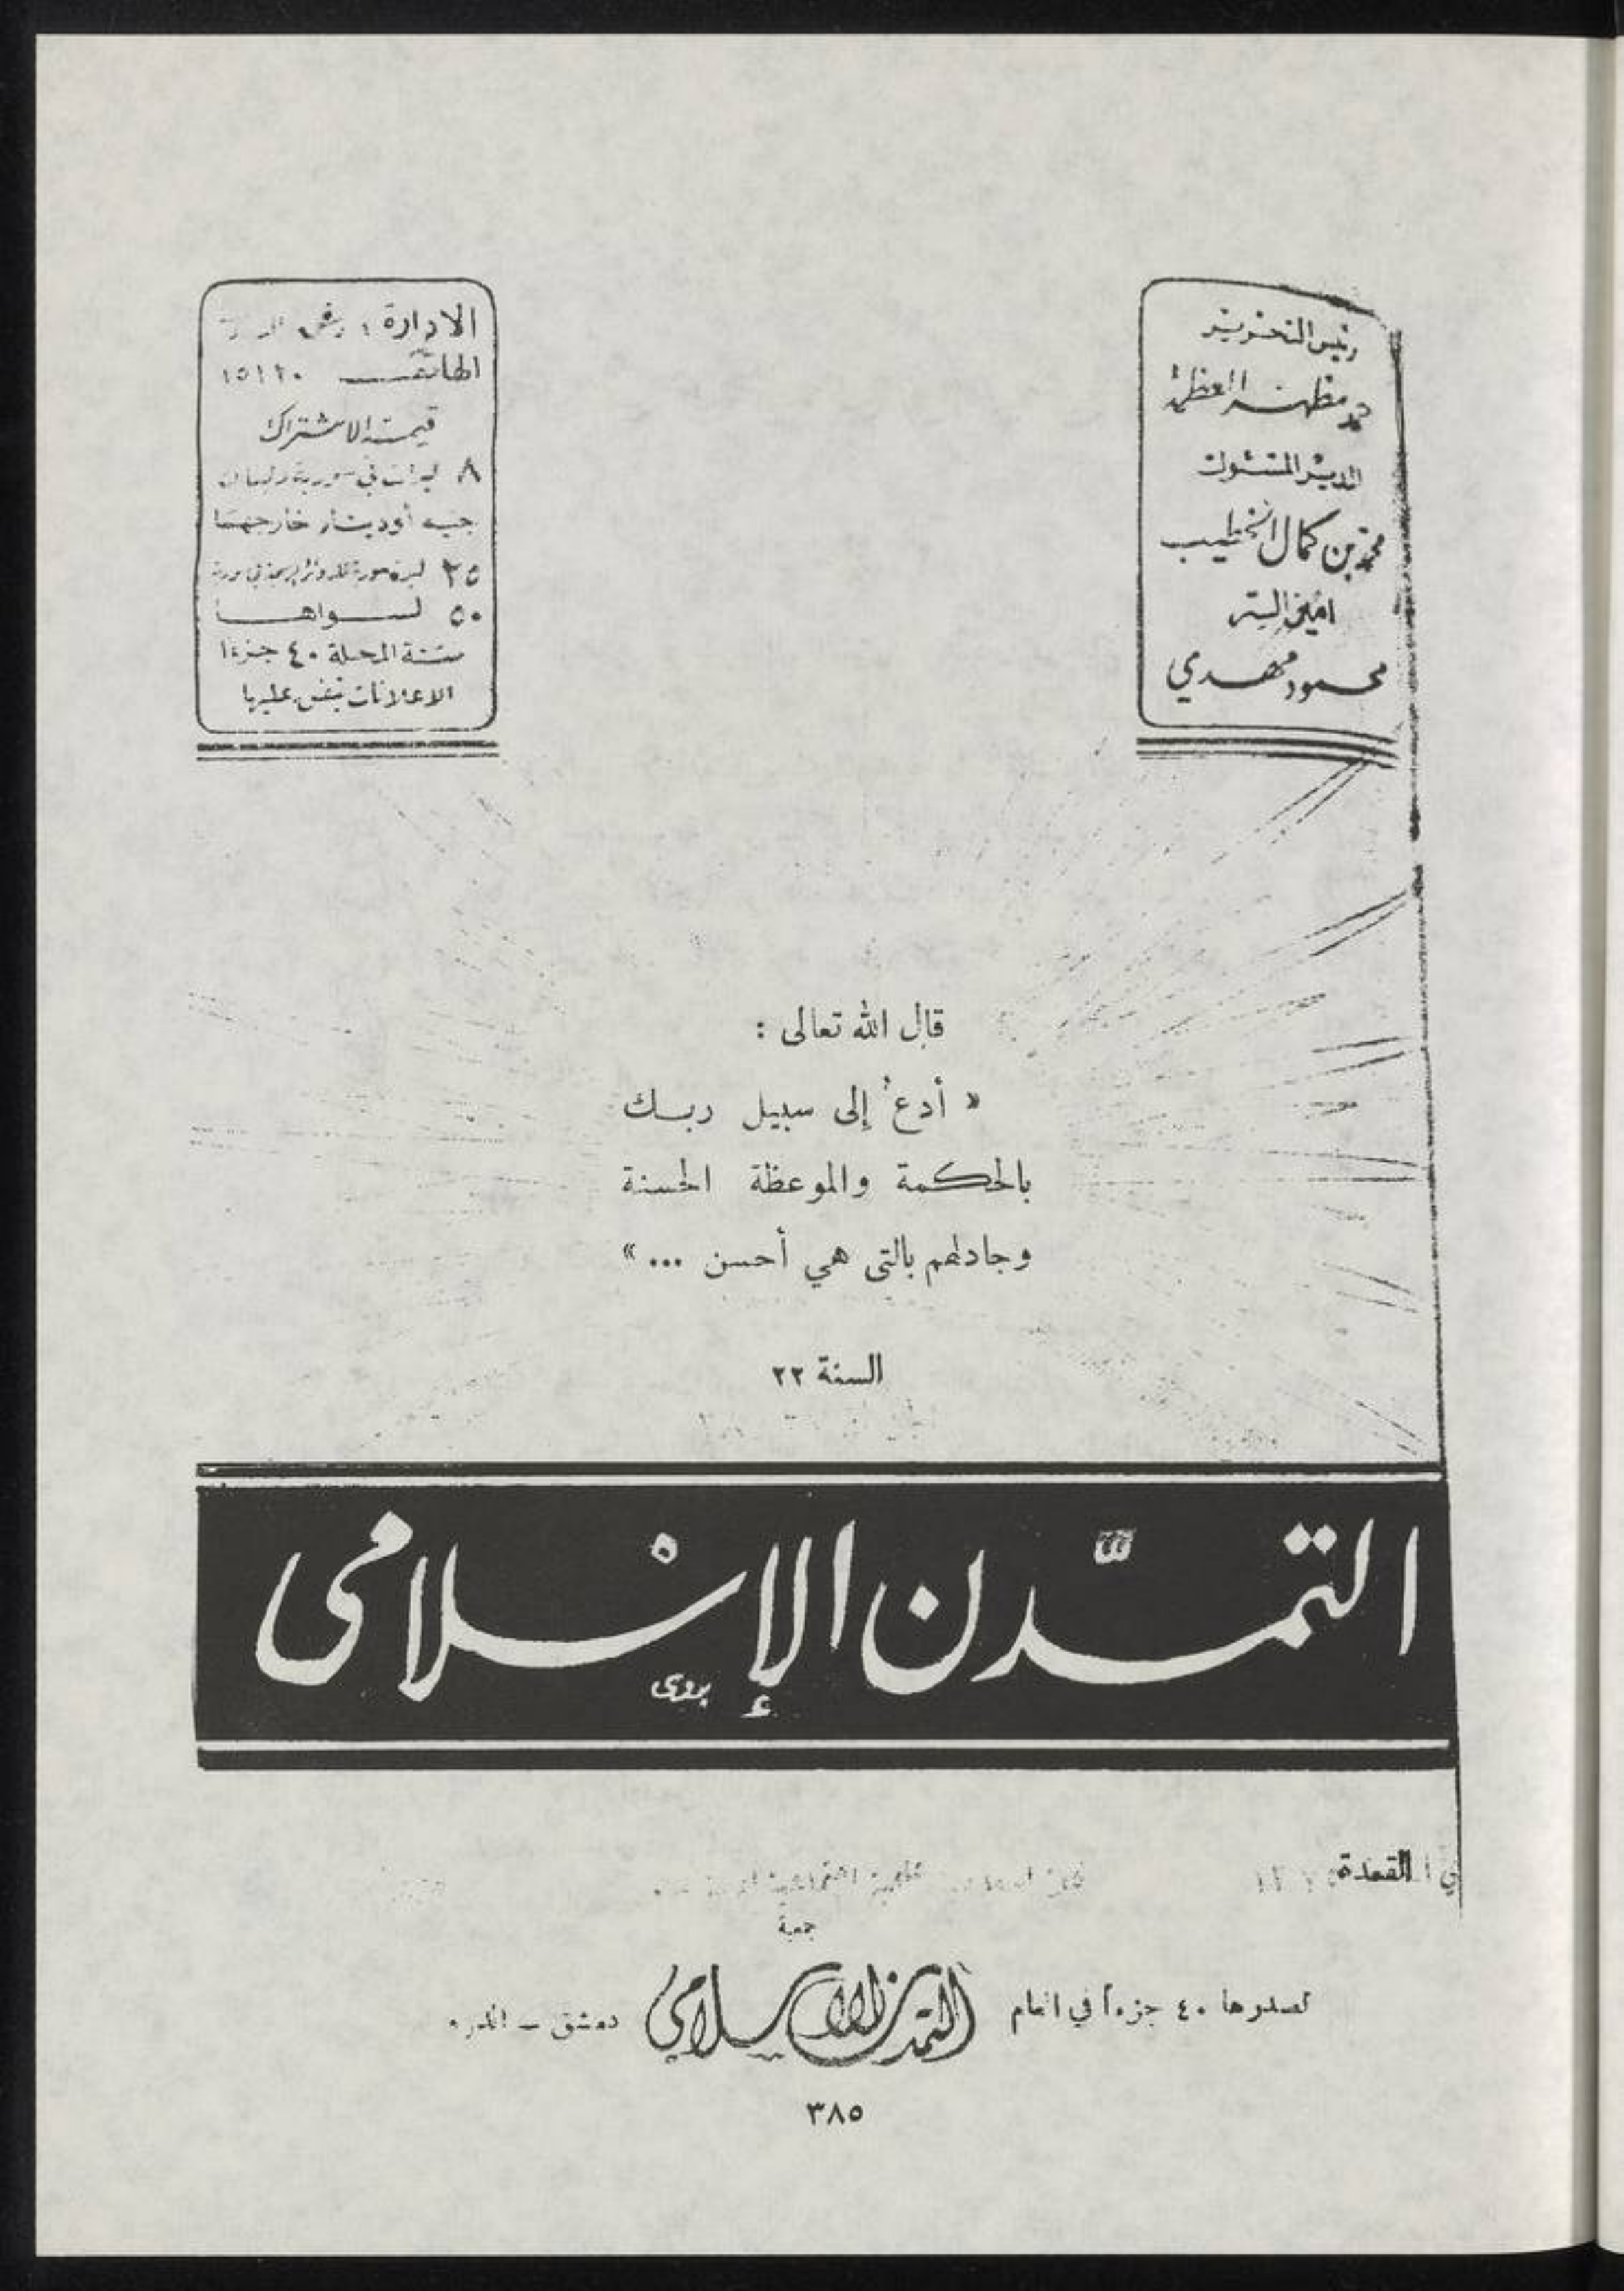 رئيس التحرير
مظهر العظمة
المدير المسئول
محمد بن كمال الخطيب
امين السر
محمود مهدي
الادارة
الهاتف ١٥١٢٠
قيمة الاشتراك
٨ ليرات في سورية ولبنان
جنيه أو دينار خارجهما
٢٥ ليرة سورية
٥٠ لسواها
سنة المجلة ٤٠ جزءا
الاعلانات يتفق عليها
قال الله تعالى :
« أدعُ إلى سبيل ربك
بالحكمة والموعظة الحسنة
وجادلهم بالتي هي أحسن ... »
السنة ٢٢
التمدّن الإسْلامى
بدوى
القعدة
جمعية
تصدرها ٤٠ جزءاً في العام
التمدن الاسلامي
دمشق –
٣٨٥